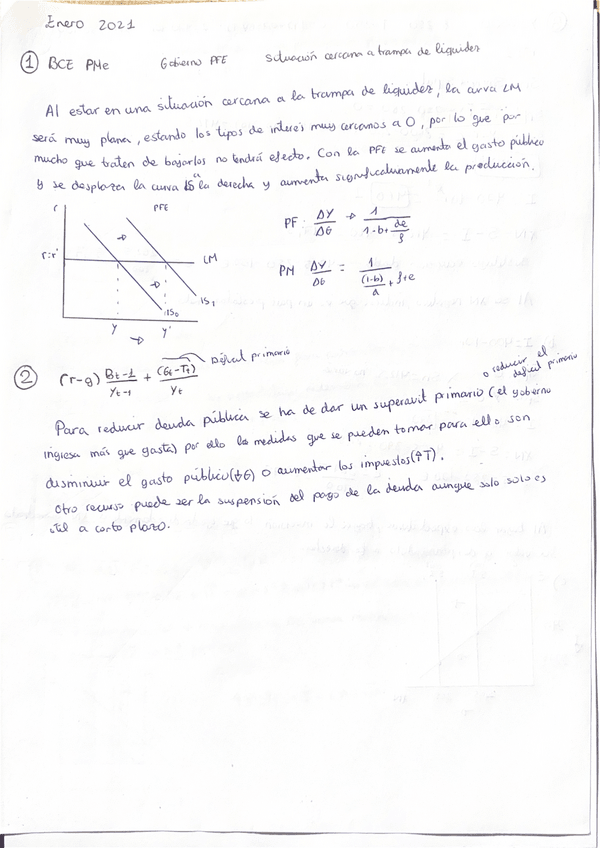 Enero 2021
① BCE PMe Gobierno PFE Situación cercana a trampa de liquidez
Al estar en una situación cercana a la trampa de liquidez, la curva LM
será muy plana, estando los tipos de interés muy cercanos a 0, por lo que por
mucho que traten de bajarlos no tendrá efecto. Con la PFE se aumenta el gasto público
y se desplaza la curva IS a la derecha y aumenta significativamente la producción.
r PFE
r=r' LM
IS₀ IS₁
Y Y'
PF: ΔY/ΔG → 1/(1-b+de/f)
PM ΔY/ΔG = 1/((1-b)/a + f+e)
② (r-g) Bt-1/Yt-1 + (Gt-Tt)/Yt Déficit primario
o reducir el déficit primario
Para reducir deuda pública se ha de dar un superavit primario (el gobierno
ingresa más que gasta) por ello las medidas que se pueden tomar para ello son
disminuir el gasto público (↓G) o aumentar los impuestos (↑T).
Otro recurso puede ser la suspensión del pago de la deuda aunque solo solo es
útil a corto plazo.